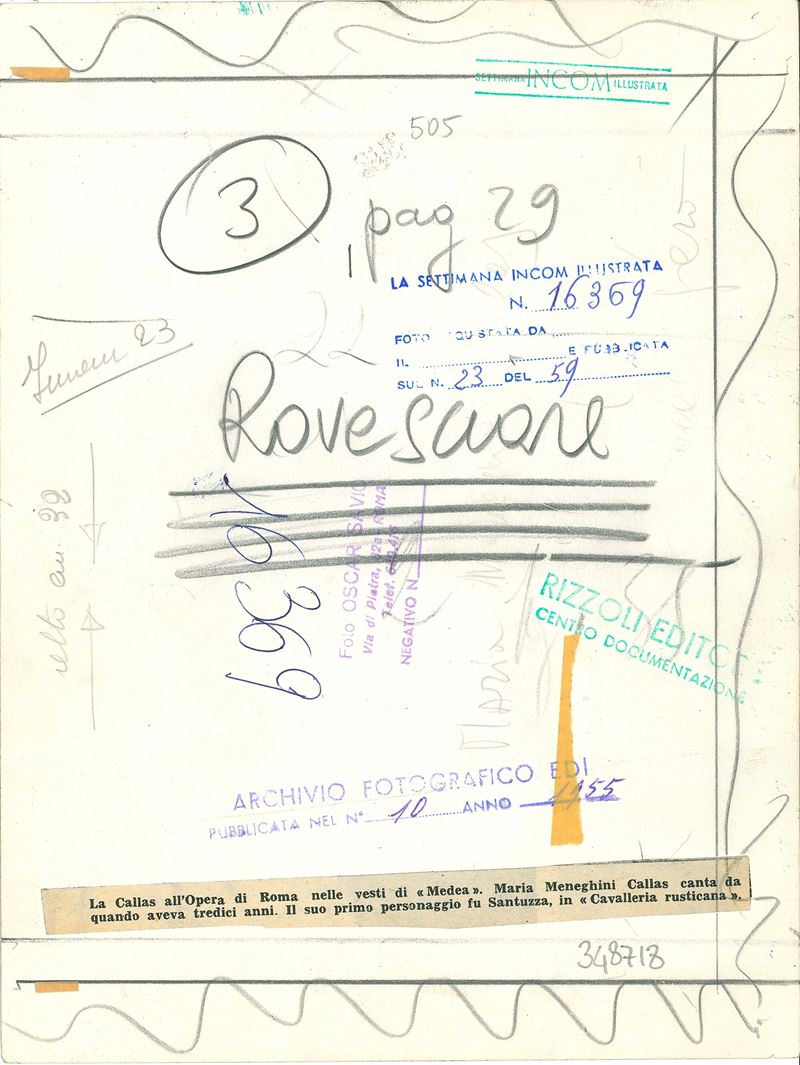 SETTIMANA INCOM ILLUSTRATA
505
3
pag 29
LA SETTIMANA INCOM ILLUSTRATA
N. 16369
FOTO ACQUISTATA DA
IL E PUBBLICATA
SUL N. 23 DEL 59
23
22
Rovesciare
16369
Foto OSCAR SAVIO
Via di Pietra, 82a - ROMA
Telef.
NEGATIVO N.
RIZZOLI EDITORE
CENTRO DOCUMENTAZIONE
Maria
ARCHIVIO FOTOGRAFICO EDI
PUBBLICATA NEL N° 10 ANNO 1955
La Callas all'Opera di Roma nelle vesti di «Medea». Maria Meneghini Callas canta da
quando aveva tredici anni. Il suo primo personaggio fu Santuzza, in «Cavalleria rusticana».
348718